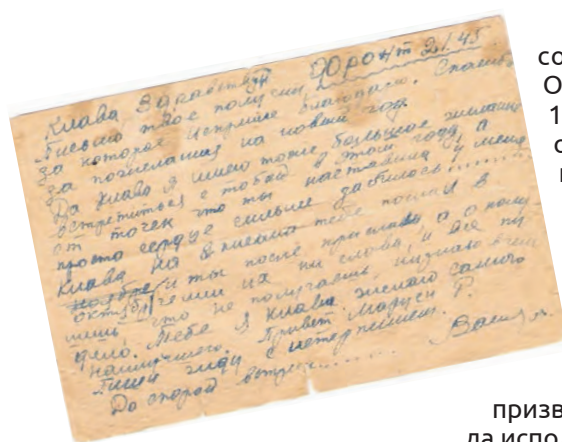 Клава здравствуй Фронт 2.1.45
Письмо твое получил,
за которое искрине благодарю. Спасибо
за пожелания на новый год.
Да Клава я имею тоже большое желание
встретиться с тобой в этом году, а
от точек что ты наставила у меня
просто сердце сильнее забилось.........
Клава на письмо тебе послал в
октябре и ты после прислала а о нему
чем ни слова, и все пи
шешь, что не получаешь,
дело. Тебе я Клава желаю самого
наилучшего. Привет Марусе Р.
Пиши жду с нетерпением.
До скорой встречи........
со
О
1
с
призв
да испо